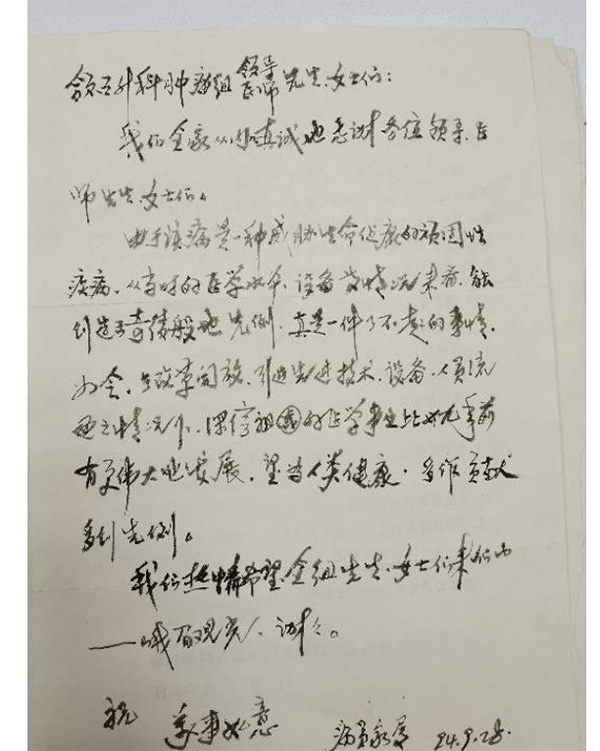 外科肿瘤组领导医师先生.女士们:
我们全家从内心真诚地感谢各位领导.医
师先生.女士们。
由于该病是一种威胁生命健康的顽固性
疾病.从当时的医学水平.设备及情况来看.能
创造奇迹般地先例.真是一件了不起的事情.
如今.在改革开放.引进先进技术.设备.人员流
通之情况下.深信祖国的医学事业比九年前
有更伟大地发展.望为人类健康.多作贡献
多创先例。
我们热情希望全组先生.女士们来仙山
——峨眉观光.谢谢。
祝 万事如意 病员家属 94.9.28.